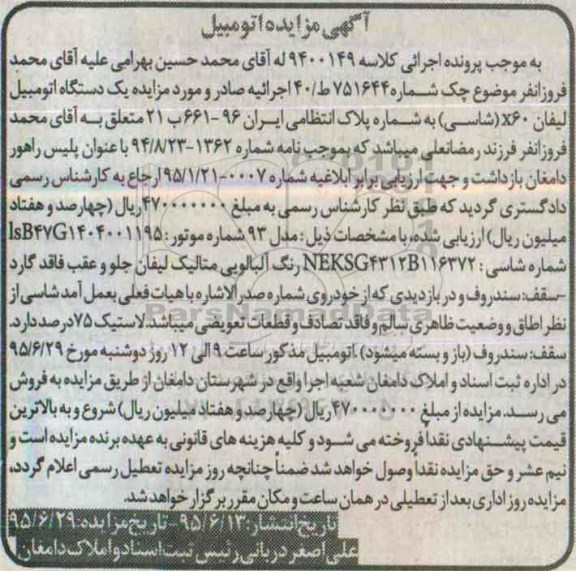 آگهی مزایده اتومبیل
به موجب پرونده اجرائی کلاسه ۹۴۰۰۱۴۹ له آقای محمد حسین بهرامی علیه آقای محمد
فروزانفر موضوع چک شماره ۷۵۱۶۴۴ ط/۴۰ اجرائیه صادر و مورد مزایده یک دستگاه اتومبیل
لیفان x۶۰ (شاسی) به شماره پلاک انتظامی ایران ۹۶ - ۶۶۱ ب ۲۱ متعلق به آقای محمد
فروزانفر فرزند رمضانعلی میباشد که بموجب نامه شماره ۱۳۶۲-۹۴/۸/۲۳ با عنوان پلیس راهور
دامغان بازداشت و جهت ارزیابی برابر ابلاغیه شماره ۰۰۰۷-۹۵/۱/۲۱ ارجاع به کارشناس رسمی
دادگستری گردید که طبق نظر کارشناس رسمی به مبلغ ۴۷۰۰۰۰۰۰۰ ریال (چهارصد و هفتاد
میلیون ریال) ارزیابی شده، با مشخصات ذیل: مدل ۹۳ شماره موتور: lsB۴۷G۱۴۰۴۰۰۱۱۹۵
شماره شاسی: NEKSG۴۳۱۲B۱۱۶۳۷۲ رنگ آلبالویی متالیک لیفان جلو و عقب فاقد گارد
-سقف: سندروف و در بازدیدی که از خودروی شماره صدرالاشاره با هیات فعلی بعمل آمد شاسی از
نظر اطاق و وضعیت ظاهری سالم و فاقد تصادف و قطعات تعویضی میباشد. لاستیک ۷۵ درصد دارد.
سقف: سندروف (باز و بسته میشود) .اتومبیل مذکور ساعت ۹ الی ۱۲ روز دوشنبه مورخ ۹۵/۶/۲۹
در اداره ثبت اسناد و املاک دامغان شعبه اجرا واقع در شهرستان دامغان از طریق مزایده به فروش
می رسد. مزایده از مبلغ ۴۷۰۰۰۰۰۰۰ ریال (چهارصد و هفتاد میلیون ریال) شروع و به بالاترین
قیمت پیشنهادی نقداً فروخته می شود و کلیه هزینه های قانونی به عهده برنده مزایده است و
نیم عشر و حق مزایده نقداً وصول خواهد شد ضمناً چنانچه روز مزایده تعطیل رسمی اعلام گردد،
مزایده روز اداری بعد از تعطیلی در همان ساعت و مکان مقرر برگزار خواهد شد.
تاریخ انتشار: ۹۵/۶/۱۳ - تاریخ مزایده: ۹۵/۶/۲۹
علی اصغر دربانی رئیس ثبت اسناد و املاک دامغان
ParsNamadData